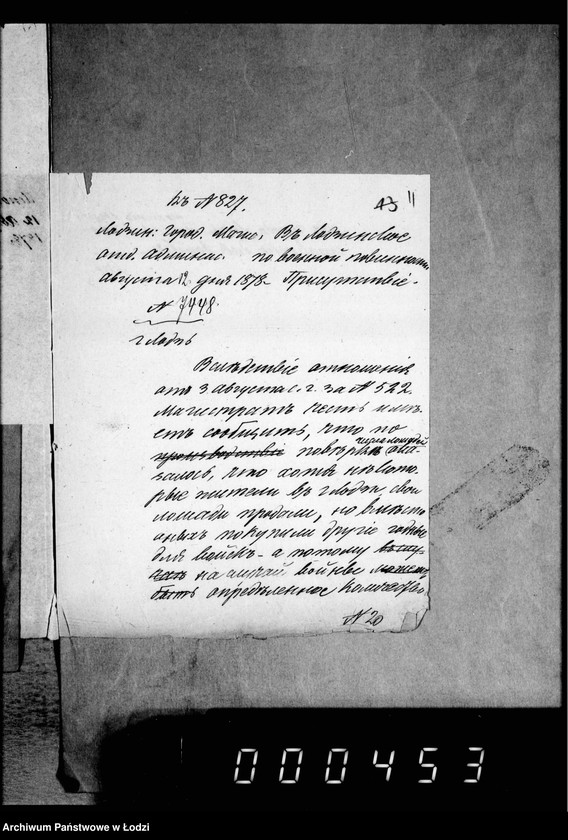 Къ № 827.
13 11
Лодзин. Город. Маг. Въ Лодзинское
отд. админис. по военной повинности
августа 12 дня 1878 Присутствіе.
№ 7448.
г Лодзь
Вслѣдствіе отношенія
отъ 3 августа с. г. за № 522.
Магистратъ честь имѣ-
етъ сообщить, что по
производствѣ повѣркѣ числа лошадей ока-
залось, что хотя нѣкото-
рые жители въ г Лодзи свои
лошади продали, но вмѣсто
оныхъ покупили другіе годные
для войскъ - а потому
на случай войны
быть опредѣленное количество
№ 20
000453
Archiwum Państwowe w Łodzi